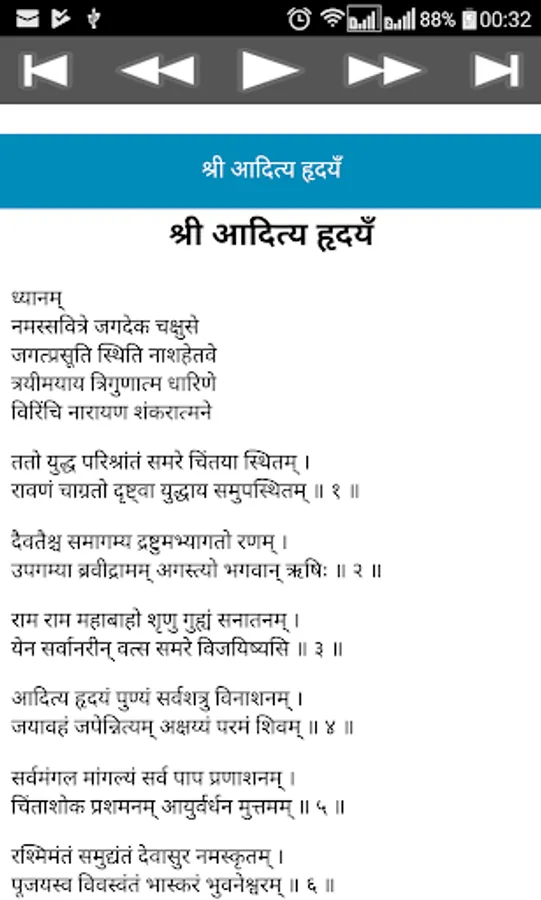 88% 00:32
श्री आदित्य हृदयँ
श्री आदित्य हृदयँ
ध्यानम्
नमस्सवित्रे जगदेक चक्षुसे
जगत्प्रसूति स्थिति नाशहेतवे
त्रयीमयाय त्रिगुणात्म धारिणे
विरिंचि नारायण शंकरात्मने
ततो युद्ध परिश्रांतं समरे चिंतया स्थितम् ।
रावणं चाग्रतो दृष्ट्वा युद्धाय समुपस्थितम् ॥ १ ॥
दैवतैश्च समागम्य द्रष्टुमभ्यागतो रणम् ।
उपगम्या ब्रवीद्रामम् अगस्त्यो भगवान् ऋषिः ॥ २ ॥
राम राम महाबाहो शृणु गुह्यं सनातनम् ।
येन सर्वानरीन् वत्स समरे विजयिष्यसि ॥ ३ ॥
आदित्य हृदयं पुण्यं सर्वशत्रु विनाशनम् ।
जयावहं जपेन्नित्यम् अक्षय्यं परमं शिवम् ॥ ४ ॥
सर्वमंगल मांगल्यं सर्व पाप प्रणाशनम् ।
चिंताशोक प्रशमनम् आयुर्वर्धन मुत्तमम् ॥ ५ ॥
रश्मिमंतं समुद्यंतं देवासुर नमस्कृतम् ।
पूजयस्व विवस्वंतं भास्करं भुवनेश्वरम् ॥ ६ ॥